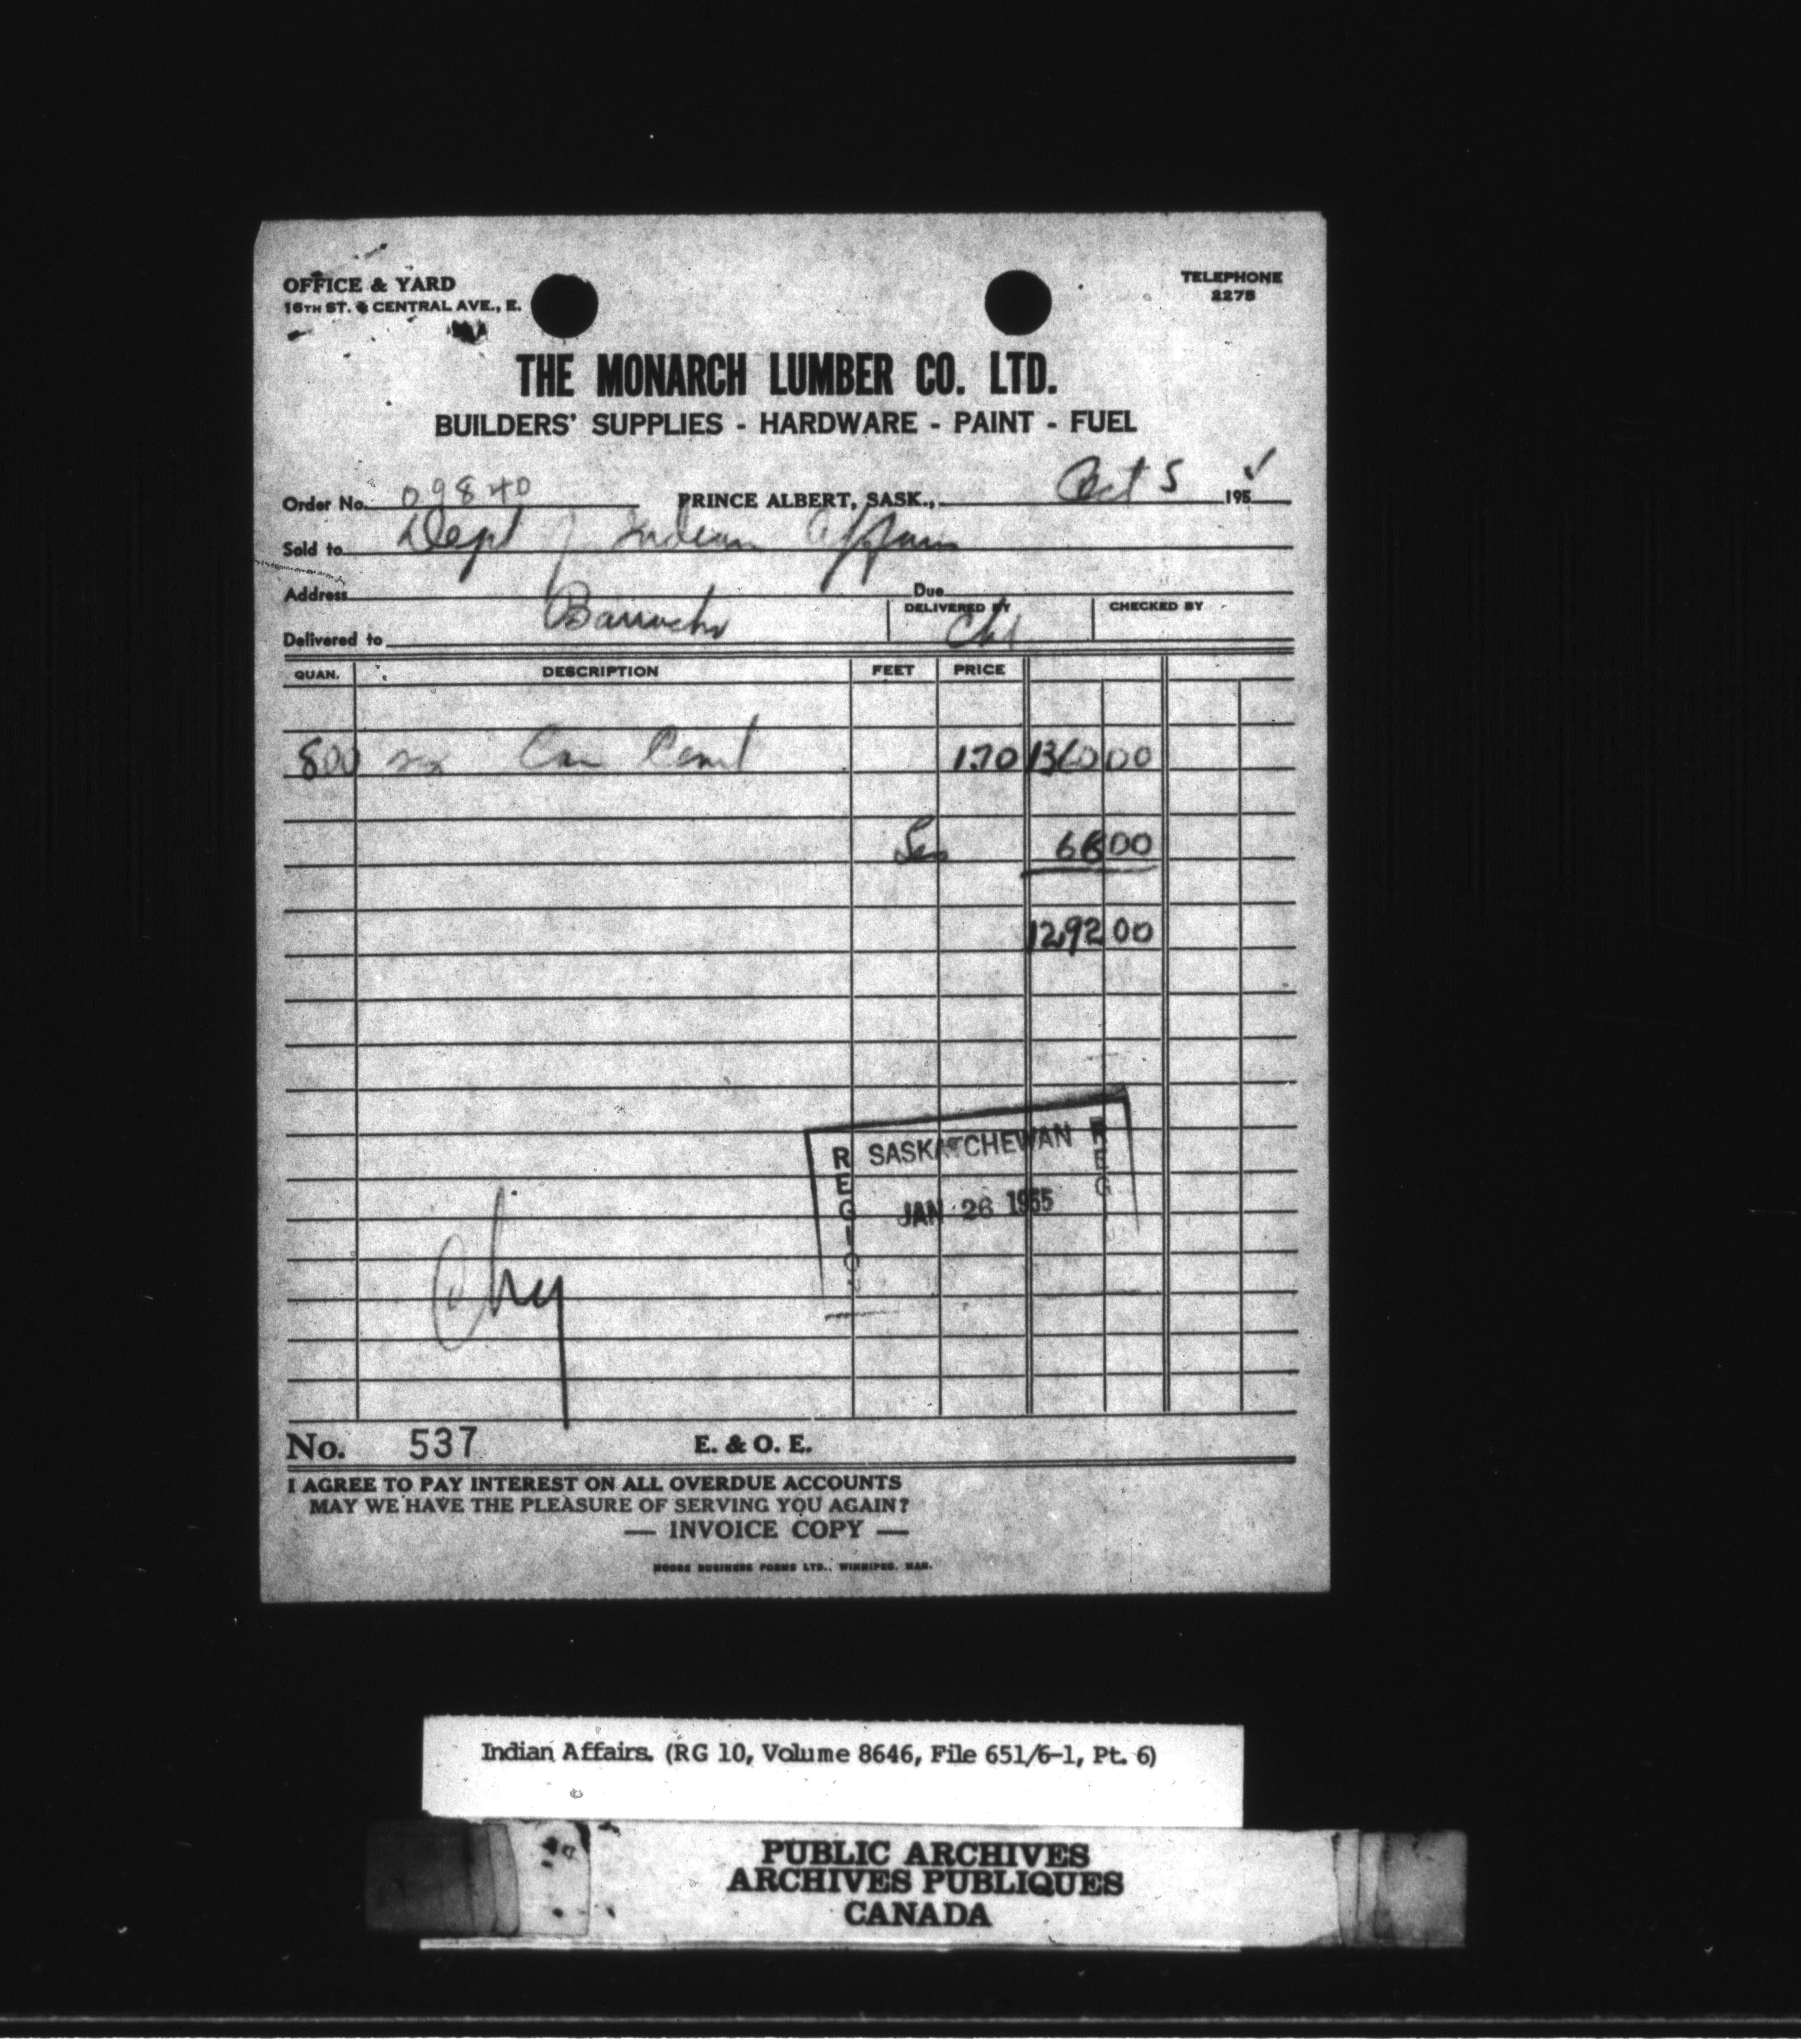 OFFICE & YARD
16TH ST. & CENTRAL AVE., E.
TELEPHONE
2275
THE MONARCH LUMBER CO. LTD.
BUILDERS' SUPPLIES - HARDWARE - PAINT - FUEL
Order No. 09840 PRINCE ALBERT, SASK., Oct 5 195
Sold to Dept of Indian Affairs
Address Due
Delivered to Barracks DELIVERED BY CHECKED BY
QUAN. DESCRIPTION FEET PRICE
800 sx 1.70 1360 00
68 00
1292 00
REGION SASKATCHEWAN REG
JAN 26 1955
No. 537 E. & O. E.
I AGREE TO PAY INTEREST ON ALL OVERDUE ACCOUNTS
MAY WE HAVE THE PLEASURE OF SERVING YOU AGAIN?
— INVOICE COPY —
MOORE BUSINESS FORMS LTD., WINNIPEG, MAN.
Indian Affairs. (RG 10, Volume 8646, File 651/6-1, Pt. 6)
PUBLIC ARCHIVES
ARCHIVES PUBLIQUES
CANADA